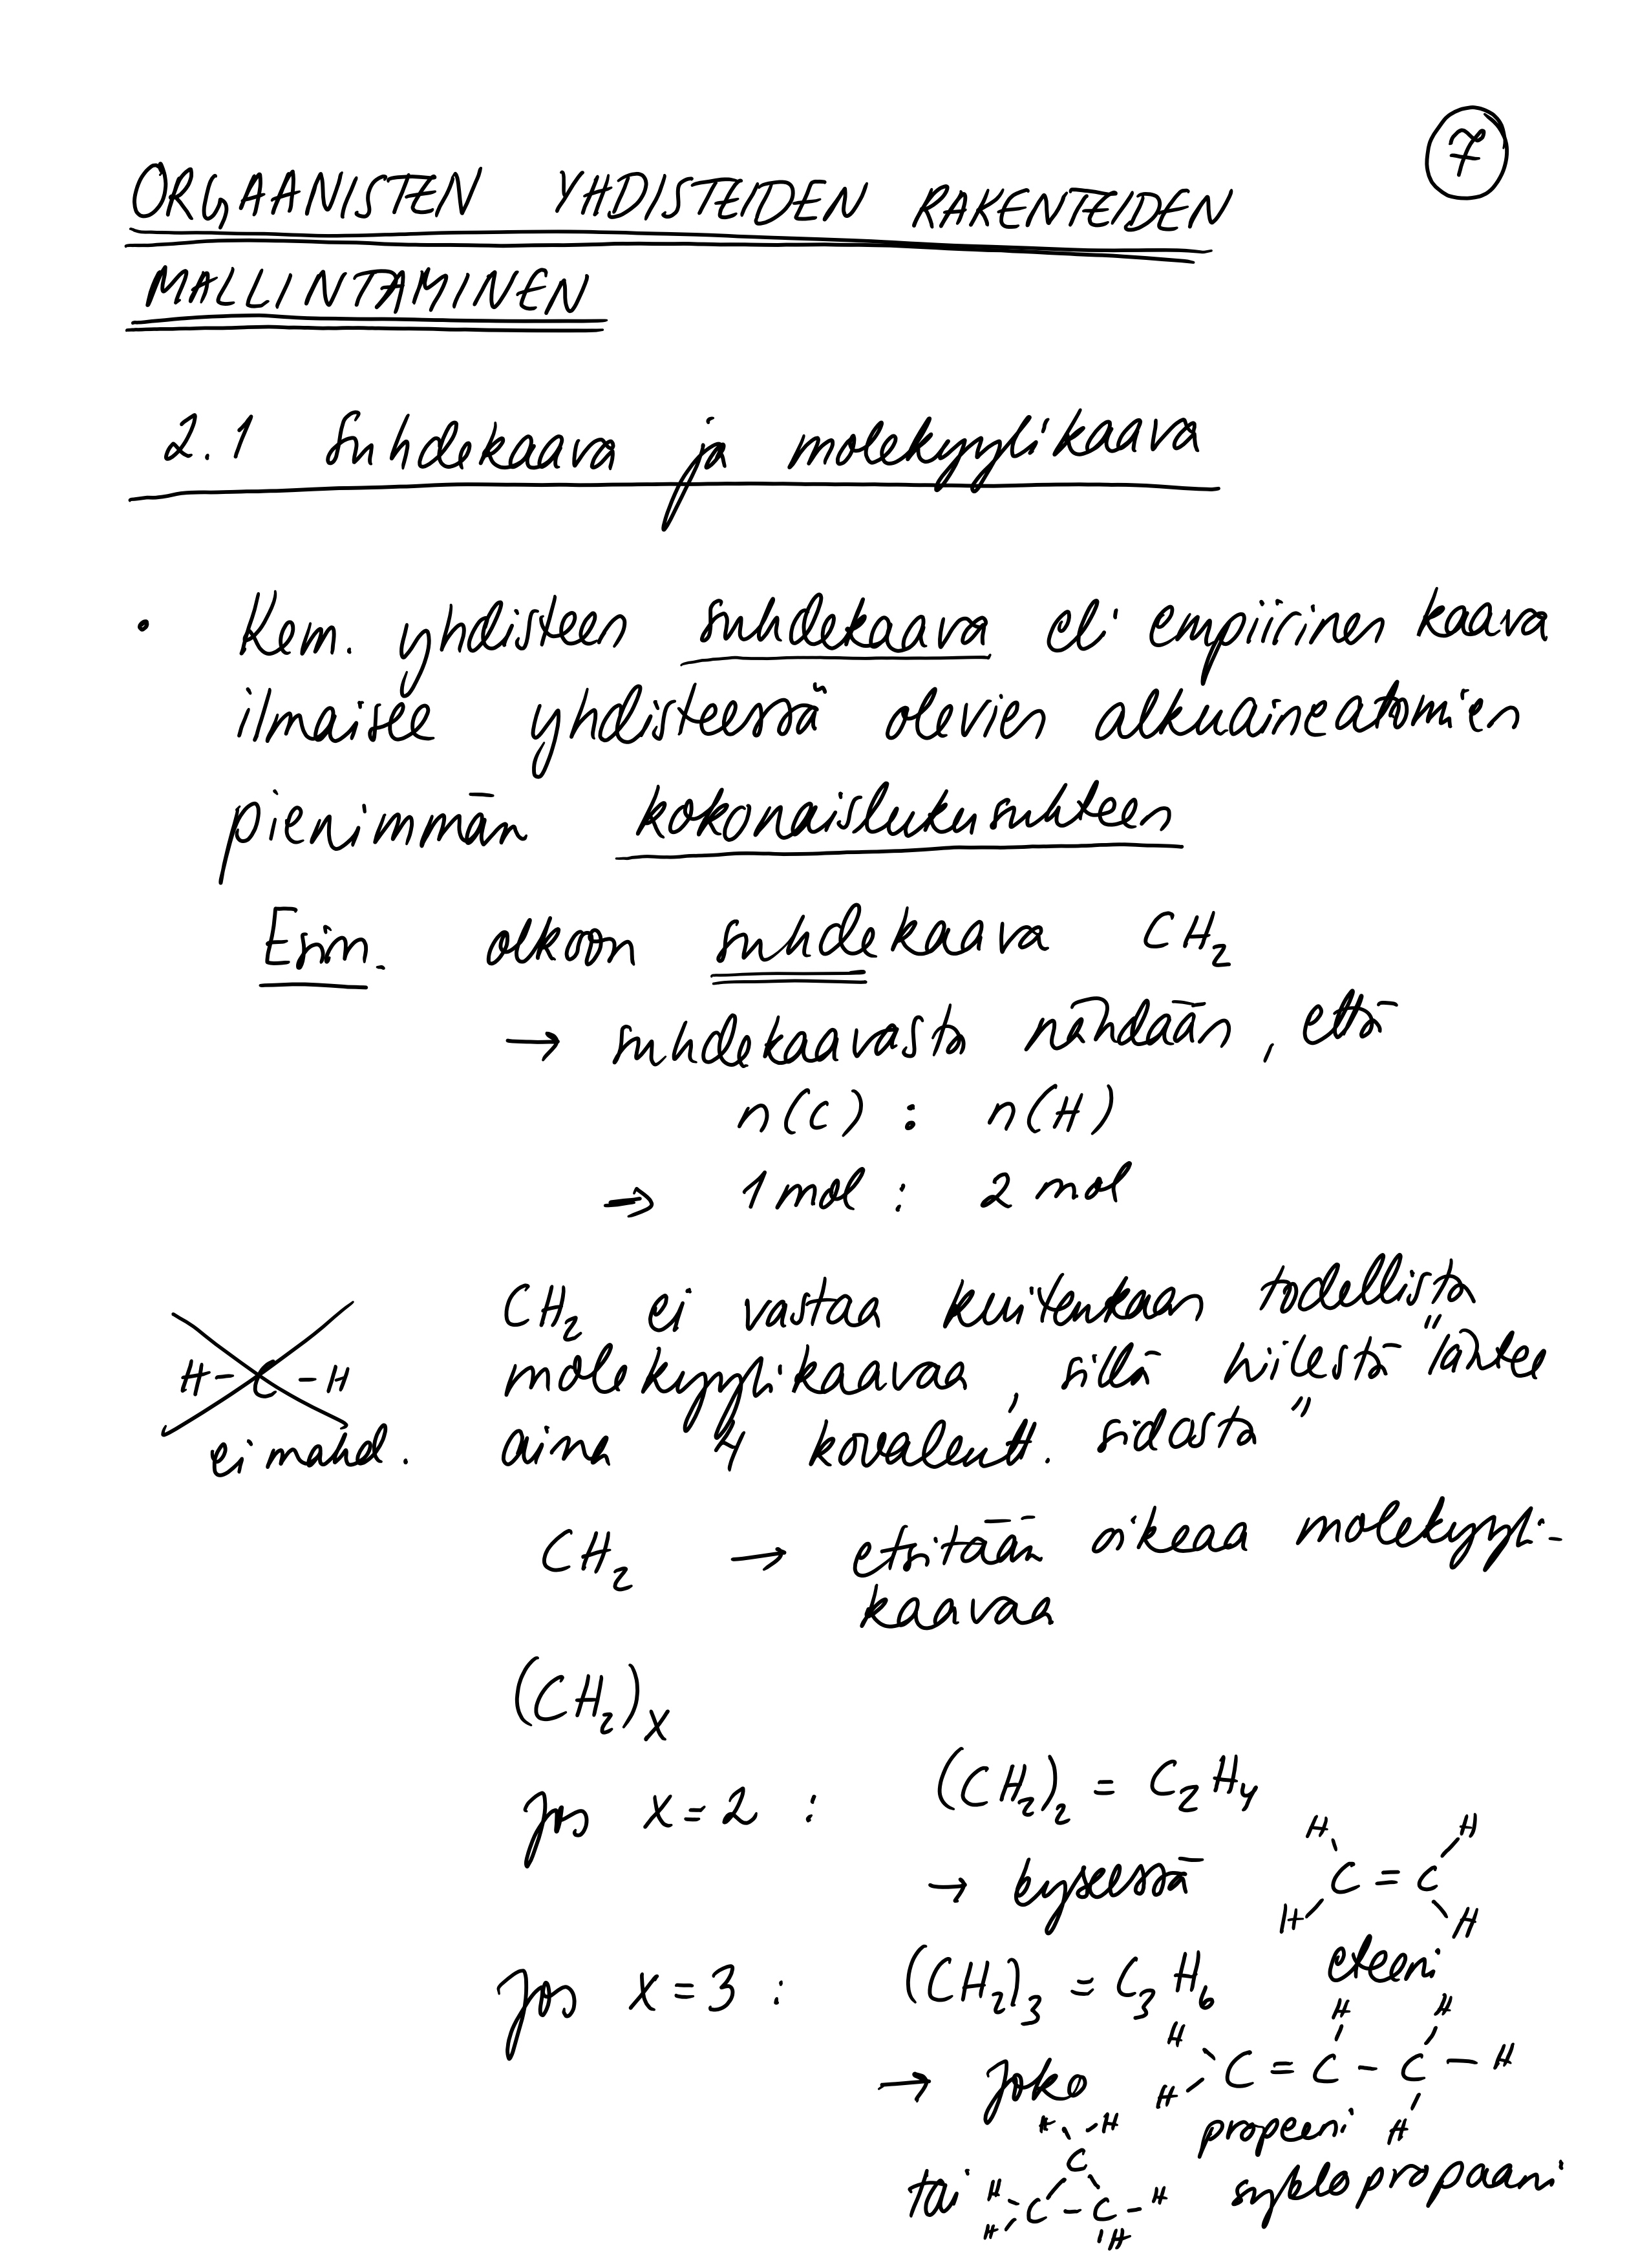 7
ORGAANISTEN YHDISTEIDEN RAKENTEIDEN
MALLINTAMINEN
2.1 Suhdekaava ja molekyylikaava
• Kem. yhdisteen suhdekaava eli empiirinen kaava
ilmaisee yhdisteessä olevien alkuaineatomien
pienimmän kokonaislukusuhteen
Esim. olkoon suhdekaava CH₂
→ suhdekaavasta nähdään, että
n(C) : n(H)
→ 1 mol : 2 mol
CH₂ ei vastaa kuitenkaan todellista
H-C-H molekyylikaavaa, sillä hiilestä "lähtee
ei mahd. aina 4 kovalentt. sidosta"
CH₂ → etsitään oikeaa molekyyli-
kaavaa
(CH₂)ₓ
Jos x=2 : (CH₂)₂ = C₂H₄
H H
→ kyseessä C=C
H H
eteeni
Jos x=3 : (CH₂)₃ = C₃H₆
H H H
→ joko C=C-C-H
H H
propeeni
H H
C
tai H C-C-H syklopropaani
H H